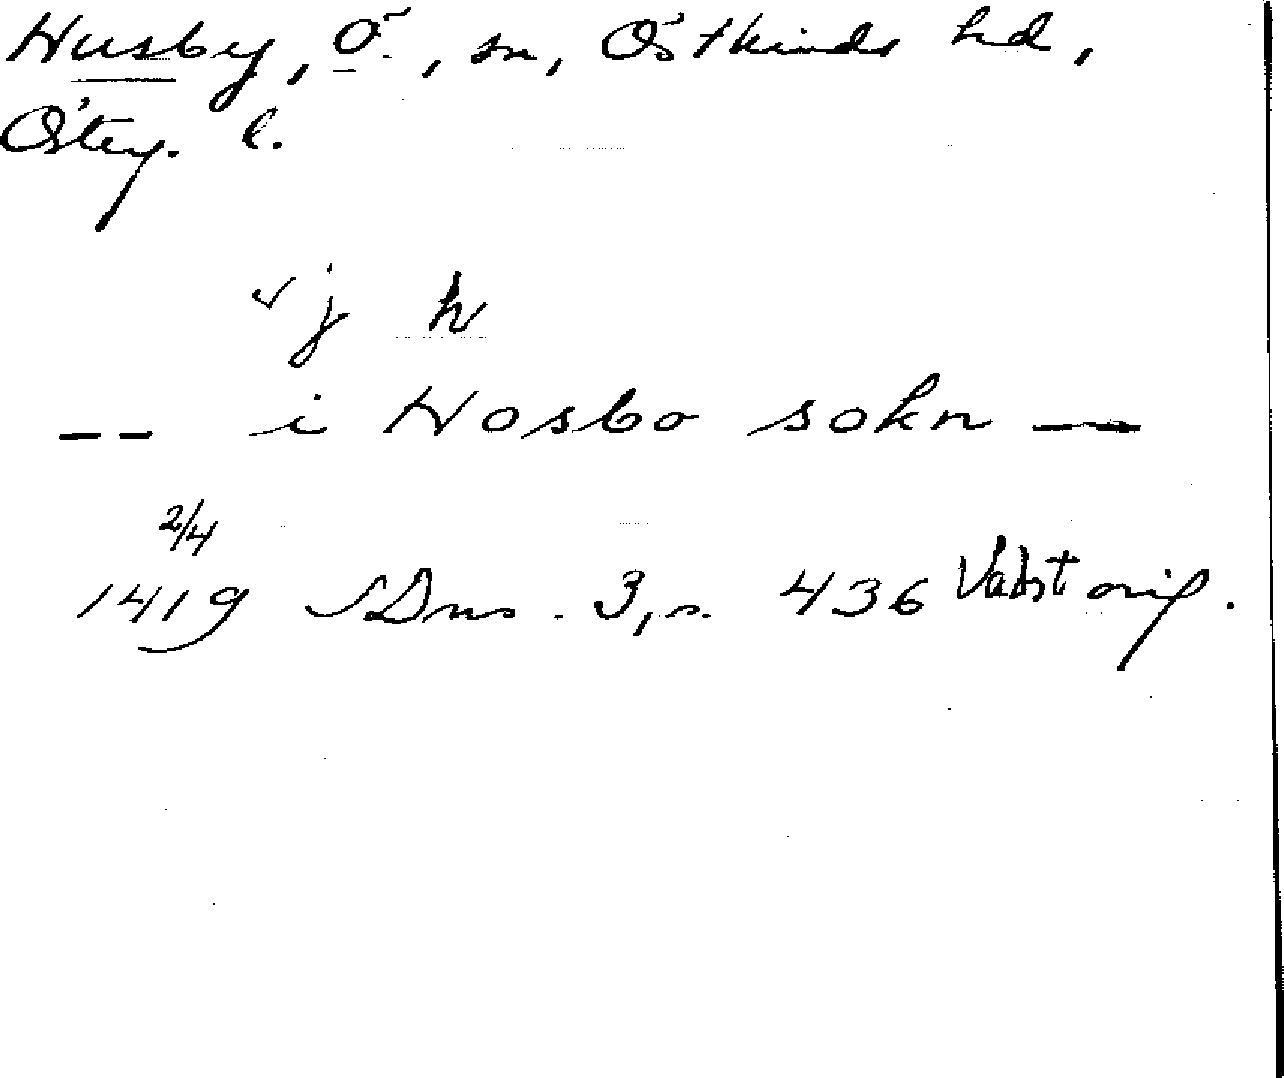 Husby, Ö., sn, Östkinds hd,
Östg. l.
j h
-- i Hosbo sokn --
2/4
1419 SDns. 3, s. 436 Vadst orig.